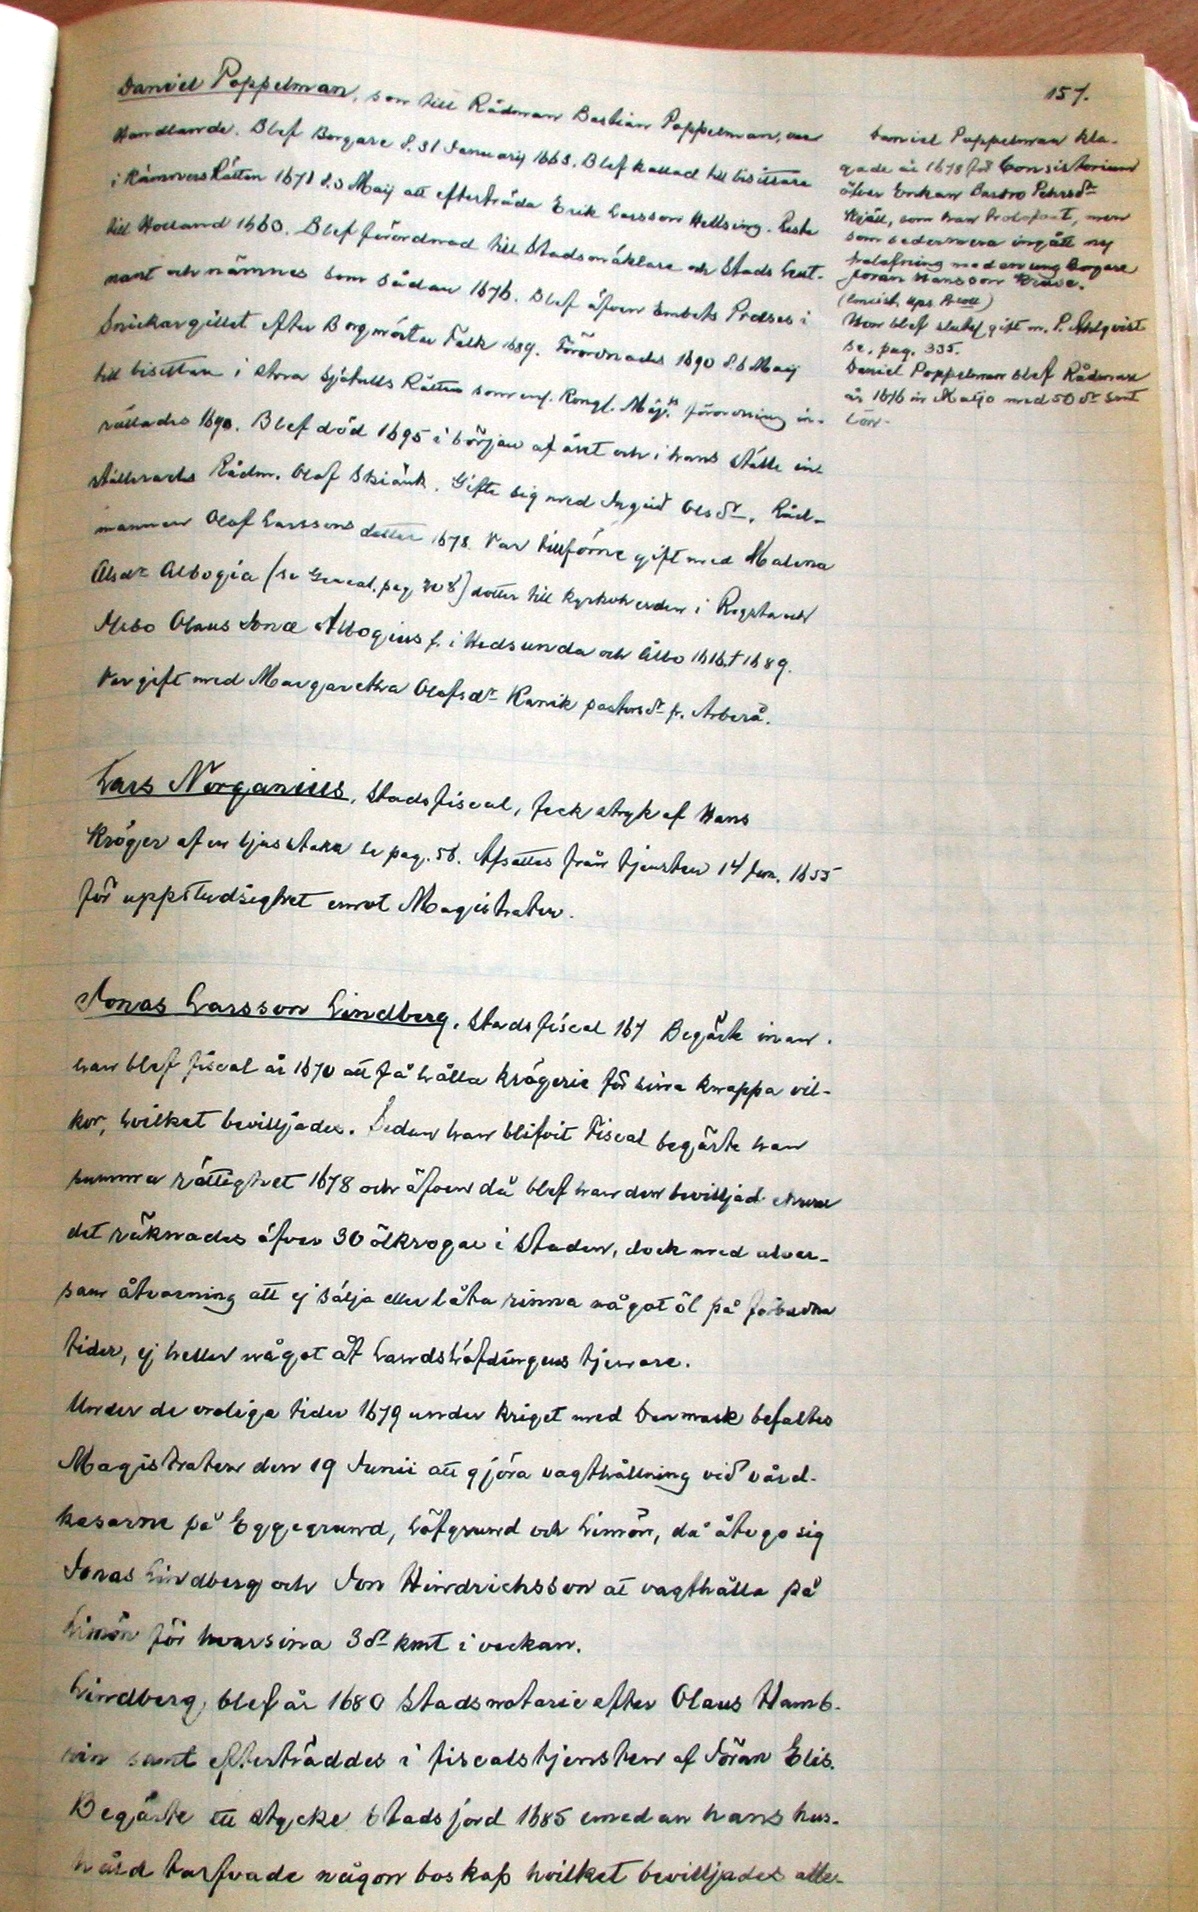 157.
Daniel Poppelman, son till Rådman Bastian Poppelman, var
Handlande. Blef Borgare d. 31 Januarij 1663. Blef kallad till bisittare
i Kämners Rätten 1671 d. 3 Maij att efterträda Erik Larsson Hellsing. Reste
till Holland 1660. Blef förordnad till Stadsmäklare och Stads Leut-
nant och nämnes som sådan 1676. Blef äfven Embets Præses i
Snickargillet efter Borgmäster Falk 1689. Förordnades 1690 d. 6 Maij
till bisittare i Stora Sjötulls Rätten som enl. Kongl. Maj:ts förordning in-
rättades 1690. Blef död 1695 i början af året och i hans ställe in-
ställerades Rådm. Olof Skiänk. Gifte sig med Ingrid Olsdr, Råd-
mannen Olof Larssons dotter 1678. Var tillförne gift med Malena
Olsdr Albogia (se Geneal. pag. 208) dotter till kyrkoherden i Rogsta och
Ilsbo Olaus Jonæ Albogius f. i Hedsunda och Ålbo 1616 † 1689.
Var gift med Margaretha Olofsdr Kanik pastorsdr fr. Arbrå.
Daniel Poppelman kla-
gade år 1678 för Consistorium
öfver Enkan Pehrsdr
som han trolofvat, men
som sedermera ingått ny
trolofning med en ung Borgare
Jöran Hansson
(Consist. Ups. Acta)
Hon blef slutel. gift m. P. Ahlqvist
se, pag. 335.
Daniel Poppelman blef Rådman
år 1676 in Majo med 50 dr Smt
lön.
Lars Norganius, Stadsfiscal, feck stryk af Hans
Kröger af en ljusstake se pag. 56. Afsattes från tjensten 14 Jun. 1655
för uppstudsighet emot Magistraten.
Jonas Larsson Lindberg, Stadsfiscal 167 Begärte innan
han blef fiscal år 1670 att få hålla krögerie för sina knappa vil-
kor, hvilket beviljades. Sedan han blifvit Fiscal begärte han
samma rättighet 1678 och äfven då blef han den beviljad ehuru
det räknades öfver 30 ölkrogar i staden, dock med alvar-
sam åtvarning att ej sälja eller låta rinna något öl på förbudna
tider, ej heller något åt Landshöfdingens tjenare.
Under de oroliga tider 1679 under kriget med Danmark befaltes
Magistraten den 19 Junii att gjöra vagthållning vid vård-
kasarne på Eggegrund, Löfgrund och Limön, då åtogo sig
Jonas Lindberg och Jon Hindrichsson at vagthålla på
Limön för hvarsina 3 dr kmt i veckan.
Lindberg, blef år 1680 Stadsnotarie efter Olaus Hamb-
rin samt efterträddes i fiscalstjensten af Jöran Elis.
Begärte ett stycke Stadsjord 1685 emedan hans hus-
håld tarfvade någon boskap hvilket beviljades alle-